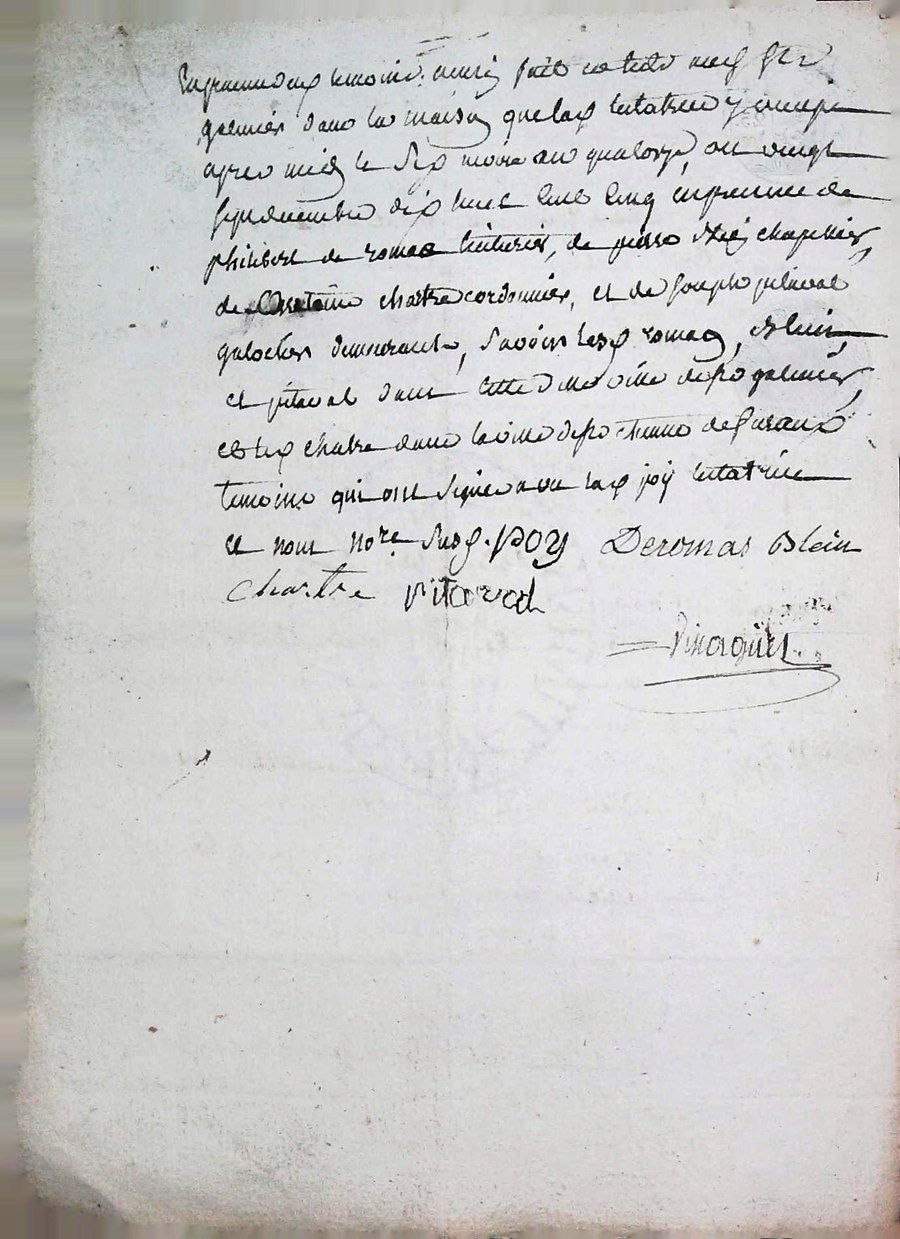 en presence des temoins ainsi fait et leu a St
galmier dans la maison que lad testatrice y occupe
apres midi le six nivose an quatorze, ou vingt
sept decembre dix huit cent cinq en presence de
philibert de romas teinturier, de pierre blein chapellier,
de Antoine chartre cordonnier, et de joseph pitaval
galocher demeurants, savoir lesd romas, blein,
et pitaval dans cette d ville de St galmier,
et led chartre dans la de
temoins qui ont signé avec lad joy testatrice
et nous no.re susd. JOY Deromas Blein
Chartre pitaval